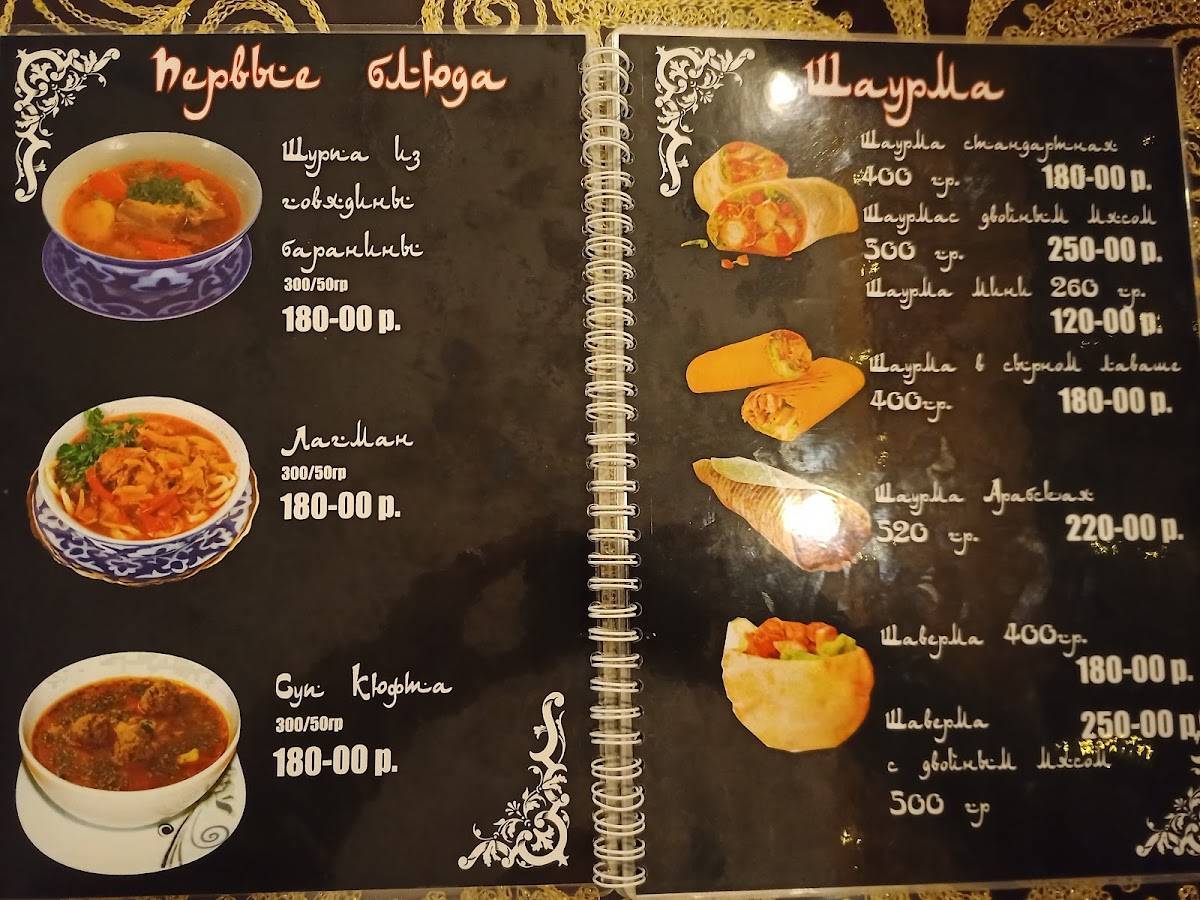 Первые блюда
Шурпа из
говядины
баранины
300/50гр
180-00 р.
Лагман
300/50гр
180-00 р.
Суп Кюфта
300/50гр
180-00 р.
Шаурма
Шаурма стандартная
400 гр. 180-00 р.
Шаурмас двойным мясом
500 гр. 250-00 р.
Шаурма мини 260 гр.
120-00 р.
Шаурма в сырном лаваше
400гр. 180-00 р.
Шаурма Арабская
520 гр. 220-00 р.
Шаверма 400гр.
180-00 р.
Шаверма 250-00 р
с двойным мясом
500 гр